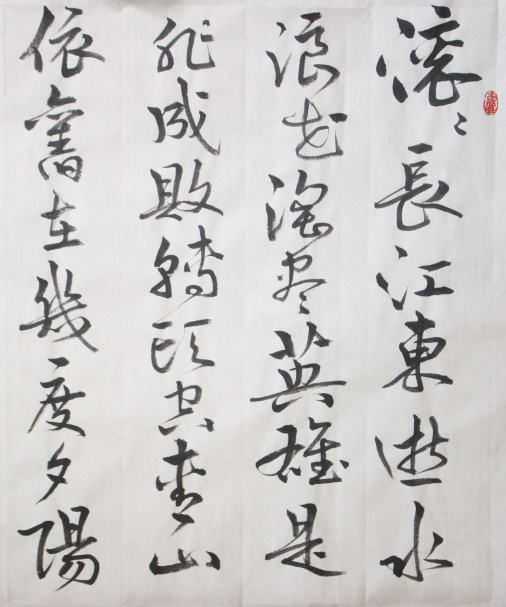 滚〻長江東逝水
浪花淘尽英雄是
非成敗轉頭空青山
依舊在幾度夕陽